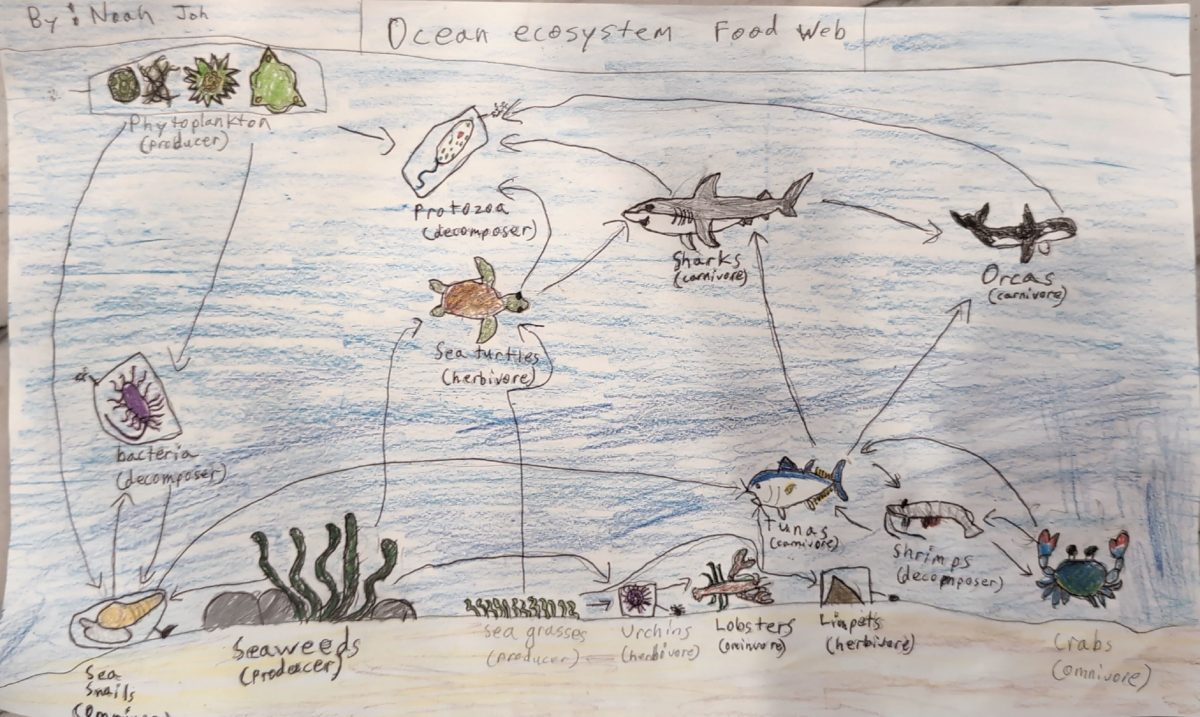 By: Noah Joh
Ocean ecosystem Food Web
Phytoplankton
(producer)
Protozoa
(decomposer)
Sharks
(carnivore)
Orcas
(carnivore)
Sea turtles
(herbivore)
bacteria
(decomposer)
tunas
(carnivore)
Shrimps
(decomposer)
Sea
Snails
Seaweeds
(producer)
Sea grasses
(producer)
Urchins
(herbivore)
Lobsters
(ominvore)
Limpets
(herbivore)
Crabs
(omnivore)